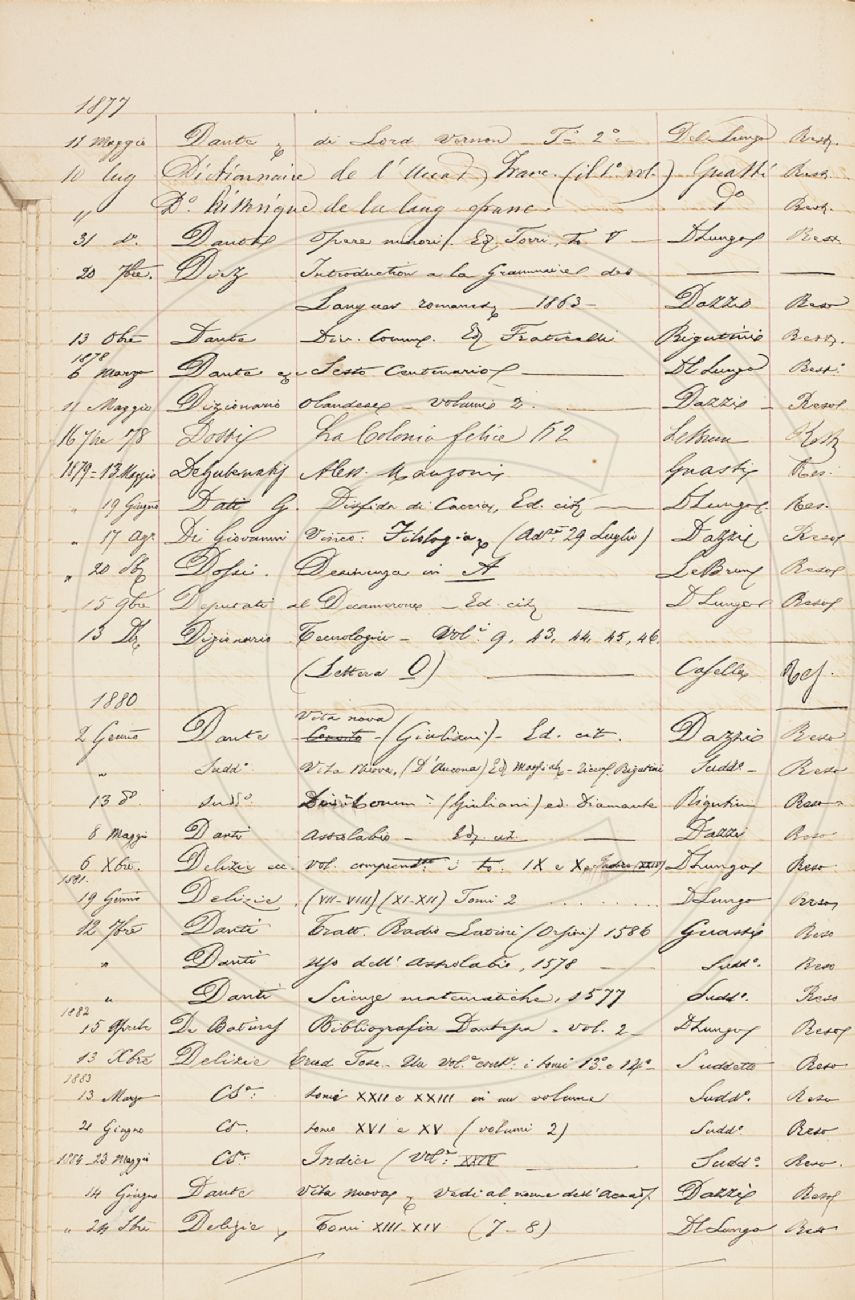 1877
11 Maggio Dante di Lord Vernon T.° 2° Del Lungo Rest.
10 lug Dictionnaire de l'Acad. Franc. (il 1° vol.) Guasti Rest.
" D.° historique de la lang franc. D° Rest.
31 d.° Dante Opere minori. Ed. Torri, to. V — D Lungo Rest.
20 7bre. Diez Introduction a la Grammaire des — —
Langues romanes — 1863 — Dazzi Reso
13 Obre Dante Div. Comm. Ed. Fraticelli Rigutini Rest.
1878
6 Marzo Dante e Sesto Centenario — Dl Lungo Rest.
11 Maggio Dizionario Olandese — volumi 2. Dazzi — Reso
16 7bre 78 Dossi La Colonia felice LeBrun Rest.
1879 = 13 Maggio DeGubernatis Aless. Manzoni Guasti Res.
" 19 Giugno Dati G. Disfida di Caccia, Ed. cit. — D Lungo Res.
" 17 Ag. Di Giovanni Vinco: Filologia (Ad.za 29 Luglio) Dazzi Reso
" 20 Dossi. Desinenza in A LeBrun Reso
15 9bre Deputati al Decamerone — Ed. cit. — D Lungo Reso
13 Dizionario Tecnologico — Vol.i 9, 43, 44, 45, 46. —
(Lettera O) — Caselli Res.
1880
Vita nova
2 Genn.° Dante — (Giuliani) — Ed. cit. Dazzi Reso
" Sudd.° Vita Nuova, (D'Ancona) Rigutini Sudd.° — Reso
13 d.° Sudd.° Div.a Comm.a (Giuliani) ed. diamante Rigutini Reso
8 Maggio Danti Astrolabio — Ed. cit. — Dazzi Reso
6 Xbre. Delizie ec. vol. i to. IX e X, Indice XXIV) D Lungo Reso
1881.
19 Genn.° Delizie. (VII-VIII) (XI-XII) Tomi 2 D Lungo Reso
12 7bre Danti Tratt. Radio Latino (Orsini) 1586 Guasti Reso
" Danti Uso dell' Astrolabio, 1578 — Sudd.° Reso
" Danti Scienze matematiche, 1577 Sudd.° Reso
1882
15 Aprile De Batines Bibliografia Dantesca — vol. 2 — D Lungo Reso
13 Xbre Delizie Erud. Tosc. — Un vol.e cont.e i tomi 13° e 14° — Suddetto Reso
1883
13 Marzo tomi XXII e XXIII in un volume Sudd.° Reso
21 Giugno tomi XVI e XV (volumi 2) Sudd.° Reso
1884 23 Maggio Indici (Vol.e XXIV — Sudd.° Reso.
14 Giugno Dante Vita nuova, Vedi al nome dell'Accad. Dazzi Reso
" 24 Delizie, Tomi XIII-XIV (7-8) Dl Lungo Reso